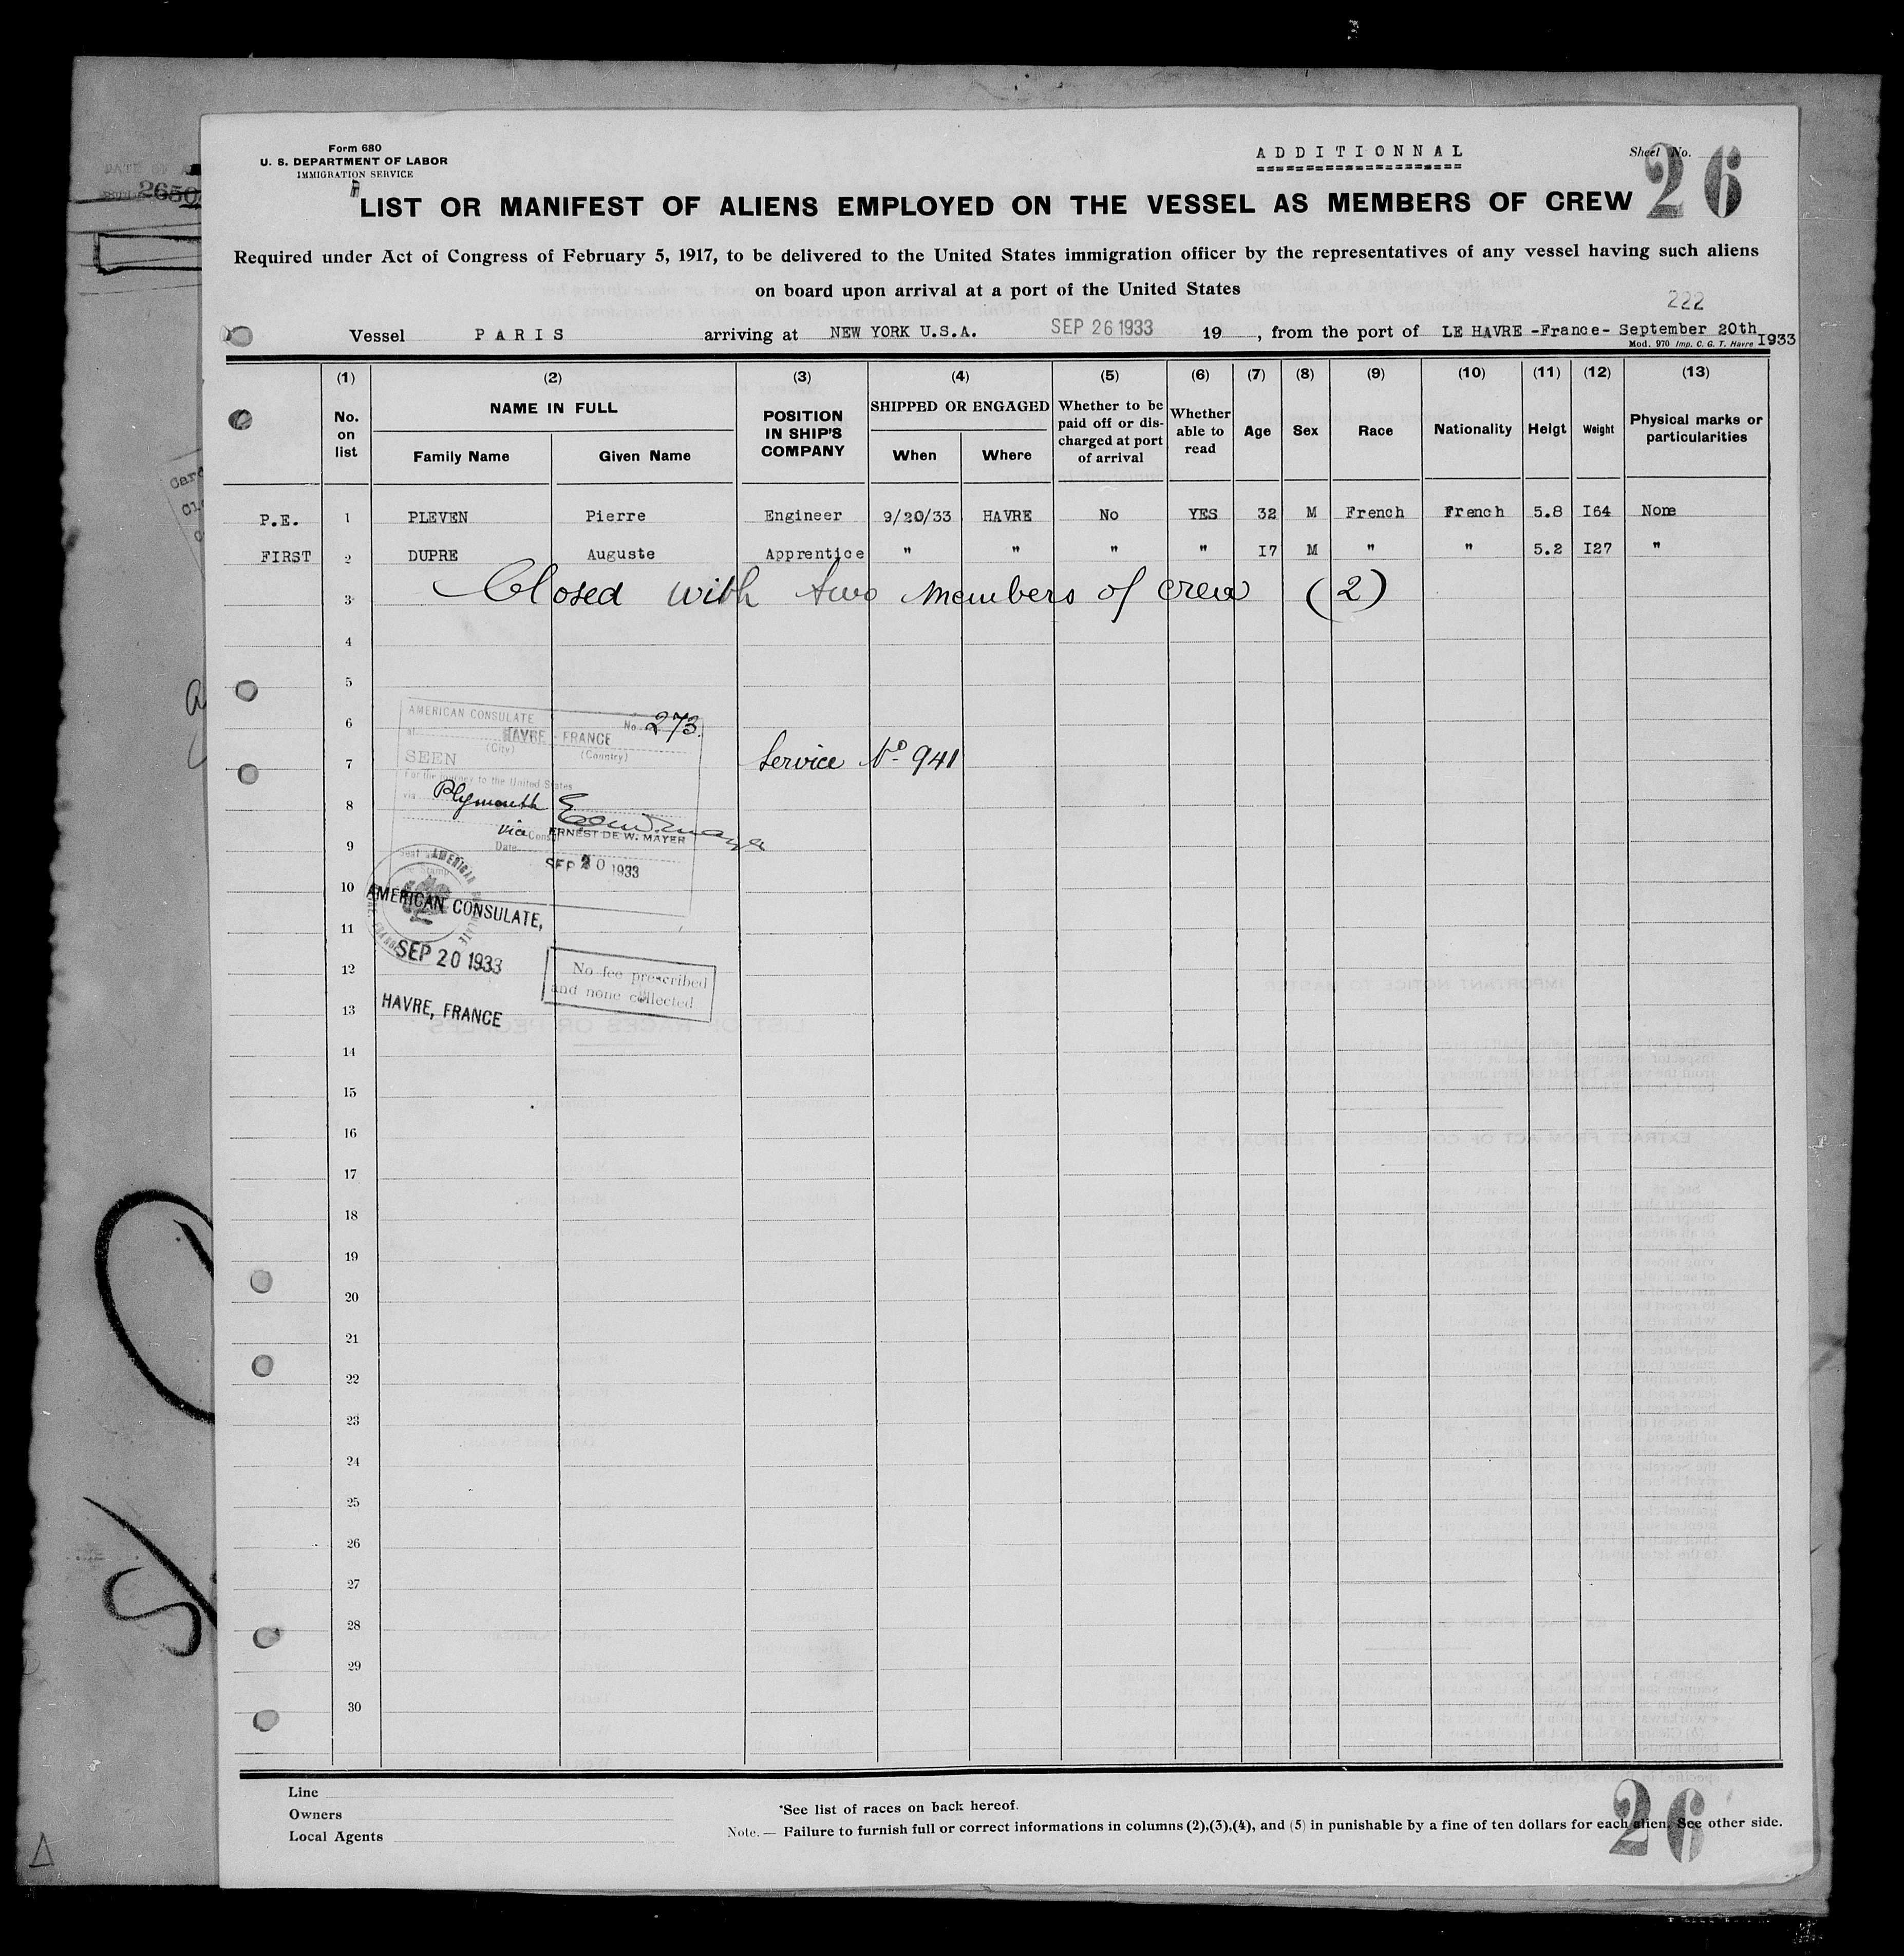 Form 680
U. S. DEPARTMENT OF LABOR
IMMIGRATION SERVICE
ADDITIONNAL
Sheet No. 26
LIST OR MANIFEST OF ALIENS EMPLOYED ON THE VESSEL AS MEMBERS OF CREW
Required under Act of Congress of February 5, 1917, to be delivered to the United States immigration officer by the representatives of any vessel having such aliens
on board upon arrival at a port of the United States
222
Vessel PARIS arriving at NEW YORK U.S.A. SEP 26 1933 19 , from the port of LE HAVRE -France- September 20th 1933
Mod. 970 Imp. C. G. T. Havre
(1) (2) (3) (4) (5) (6) (7) (8) (9) (10) (11) (12) (13)
No. on list NAME IN FULL Family Name Given Name POSITION IN SHIP'S COMPANY SHIPPED OR ENGAGED When Where Whether to be paid off or discharged at port of arrival Whether able to read Age Sex Race Nationality Heigt Weight Physical marks or particularities
P.E. 1 PLEVEN Pierre Engineer 9/20/33 HAVRE No YES 32 M French French 5.8 I64 None
FIRST 2 DUPRE Auguste Apprentice " " " " I7 M " " 5.2 I27 "
3 Closed with two members of crew (2)
4
5
6
7
8
9
10
11
12
13
14
15
16
17
18
19
20
21
22
23
24
25
26
27
28
29
30
AMERICAN CONSULATE
No. 273
at HAVRE FRANCE
(City) (Country)
SEEN
For the journey to the United States
via Plymouth
via
ERNEST DE W. MAYER
Date SEP 20 1933
Service No 941
AMERICAN CONSULATE,
SEP 20 1933
HAVRE, FRANCE
No fee prescribed
and none collected
Line
Owners
Local Agents
*See list of races on back hereof.
Note. — Failure to furnish full or correct informations in columns (2),(3),(4), and (5) in punishable by a fine of ten dollars for each alien. See other side.
26